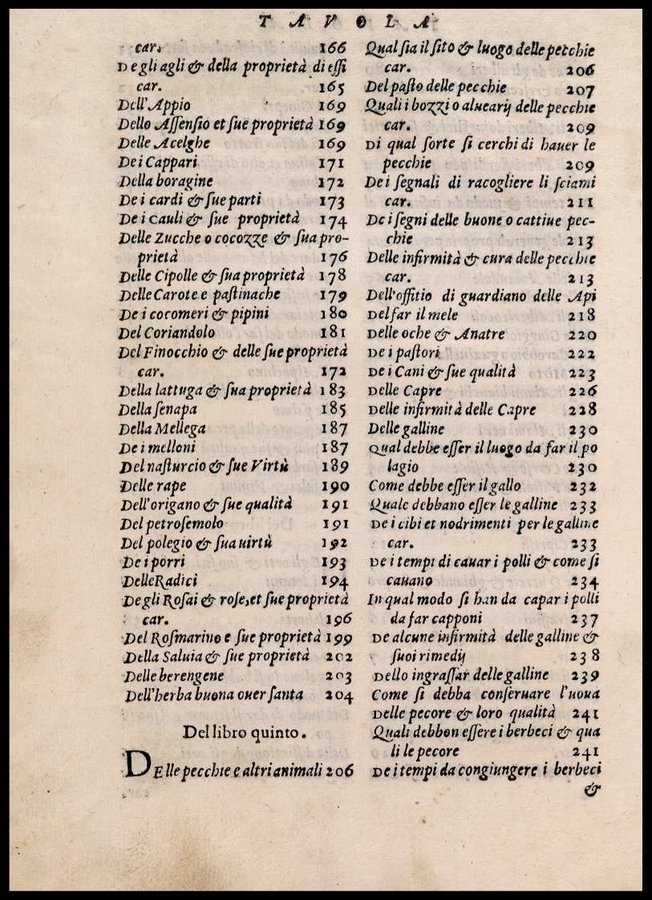 TAVOLA
car. 166
Degli agli & della proprietà di essi
car. 165
Dell'Appio 169
Dello Assensio et sue proprietà 169
Delle Acelghe 169
De i Cappari 171
Della boragine 172
De i cardi & sue parti 173
De i Cauli & sue proprietà 174
Delle Zucche o cocozze & sua pro-
prietà 176
Delle Cipolle & sua proprietà 178
Delle Carote e pastinache 179
De i cocomeri & pipini 180
Del Coriandolo 181
Del Finocchio & delle sue proprietà
car. 172
Della lattuga & sua proprietà 183
Della senapa 185
Della Mellega 187
De i melloni 187
Del nasturcio & sue Virtù 189
Delle rape 190
Dell'origano & sue qualità 191
Del petrosemolo 191
Del polegio & sua uirtù 192
De i porri 193
Delle Radici 194
Degli Rosai & rose, et sue proprietà
car. 196
Del Rosmarino e sue proprietà 199
Della Saluia & sue proprietà 202
Delle berengene 203
Dell'herba buona ouer santa 204
Del libro quinto.
DElle pecchie e altri animali 206
Qual sia il sito & luogo delle pecchie
car. 206
Del pasto delle pecchie 207
Quali i bozzi o aluearij delle pecchie
car. 209
Di qual sorte si cerchi di hauer le
pecchie 209
De i segnali di racogliere li sciami
car. 211
De i segni delle buone o cattiue pec-
chie 213
Delle infirmità & cura delle pecchie
car. 213
Dell'offitio di guardiano delle Api
Del far il mele 218
Delle oche & Anatre 220
De i pastori 222
De i Cani & sue qualità 223
Delle Capre 226
Delle infirmità delle Capre 228
Delle galline 230
Qual debbe esser il luogo da far il po
lagio 230
Come debbe esser il gallo 232
Quale debbano esser le galline 233
De i cibi et nodrimenti per le galline
car. 233
De i tempi di cauar i polli & come si
cauano 234
In qual modo si han da capar i polli
da far capponi 237
De alcune infirmità delle galline &
suoi rimedij 238
Dello ingrassar delle galline 239
Come si debba conseruare l'uoua
Delle pecore & loro qualità 241
Quali debbon essere i berbeci & qua
li le pecore 241
De i tempi da congiungere i berbeci
&